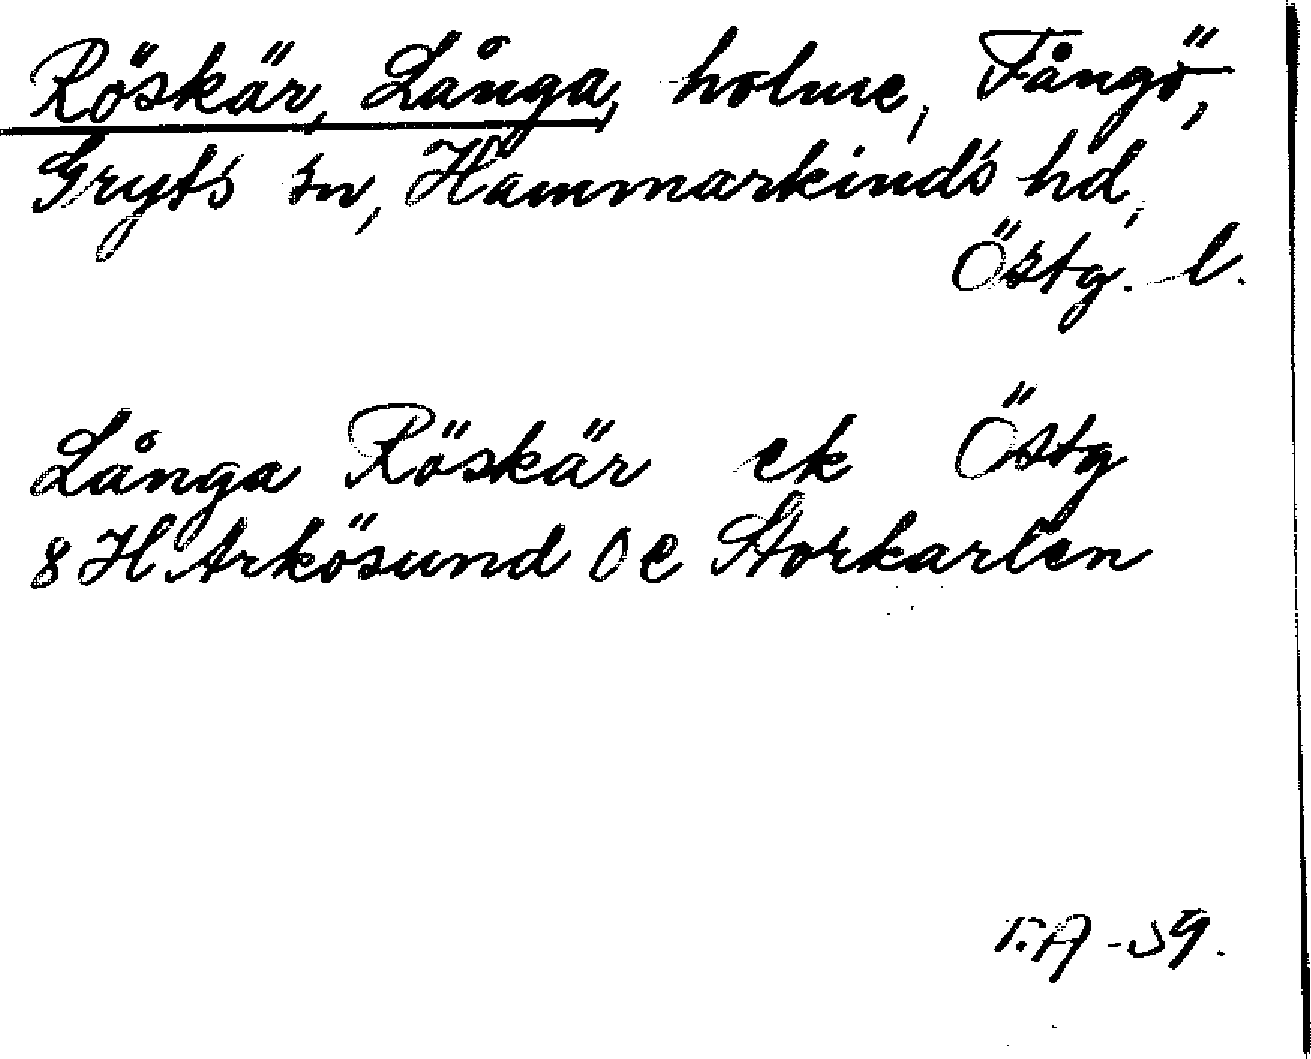 Röskär, Långa, holme, Fångö,
Gryts sn, Hammarkinds hd,
Östg. l.
Långa Röskär ek Östg
8 H Arkösund 0 e Storkarlen
T.A -59.